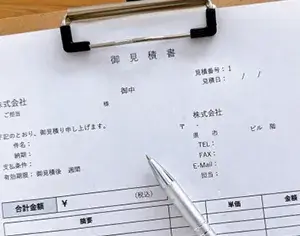 御見積書
見積番号：1
見積日： / /
株式会社
ご担当 様
御中
株式会社
下記のとおり、御見積り申し上げます。
〒 -
件名：
県 市 ビル 階
納期：
TEL：
支払条件：
FAX：
有効期限：御見積後 週間
E-Mail：
担当：
合計金額 ￥ (税込)
摘要 単価 金額